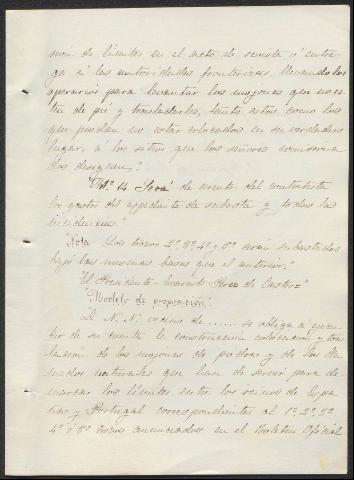 sión de límites en el acto de remate ó entre
ga á las autoridades fronterizas, llevando los
operarios para levantar los mojones que no es
tén de pié y trasladarlos, tanto estos como los
que puedan no estar colocados en su verdadero
lugar, á los sitios que los señores comisarios
les designen."
"Nº 14 Será de cuenta del contratista
los gastos del expediente de subasta y todas las
incidencias."
"Nota Los trozos 2º, 3º, 4º y 5º serán subastados
bajo las mismas bases que el anterior."
"El Presidente Evaristo Perez de Castro="
"Modelo de proposición."
D. N. N. vecino de ....... se obliga á ejecu
tar de su cuenta la construcción colocación y tras
lación de los mojones de piedra y de los
naturales que han de servir para de
marcar los límites entre los reinos de Espa
ña y Portugal correspondientes al 1º, 2º, 3º
4º ó 5º trozos anunciados en el Boletin Oficial